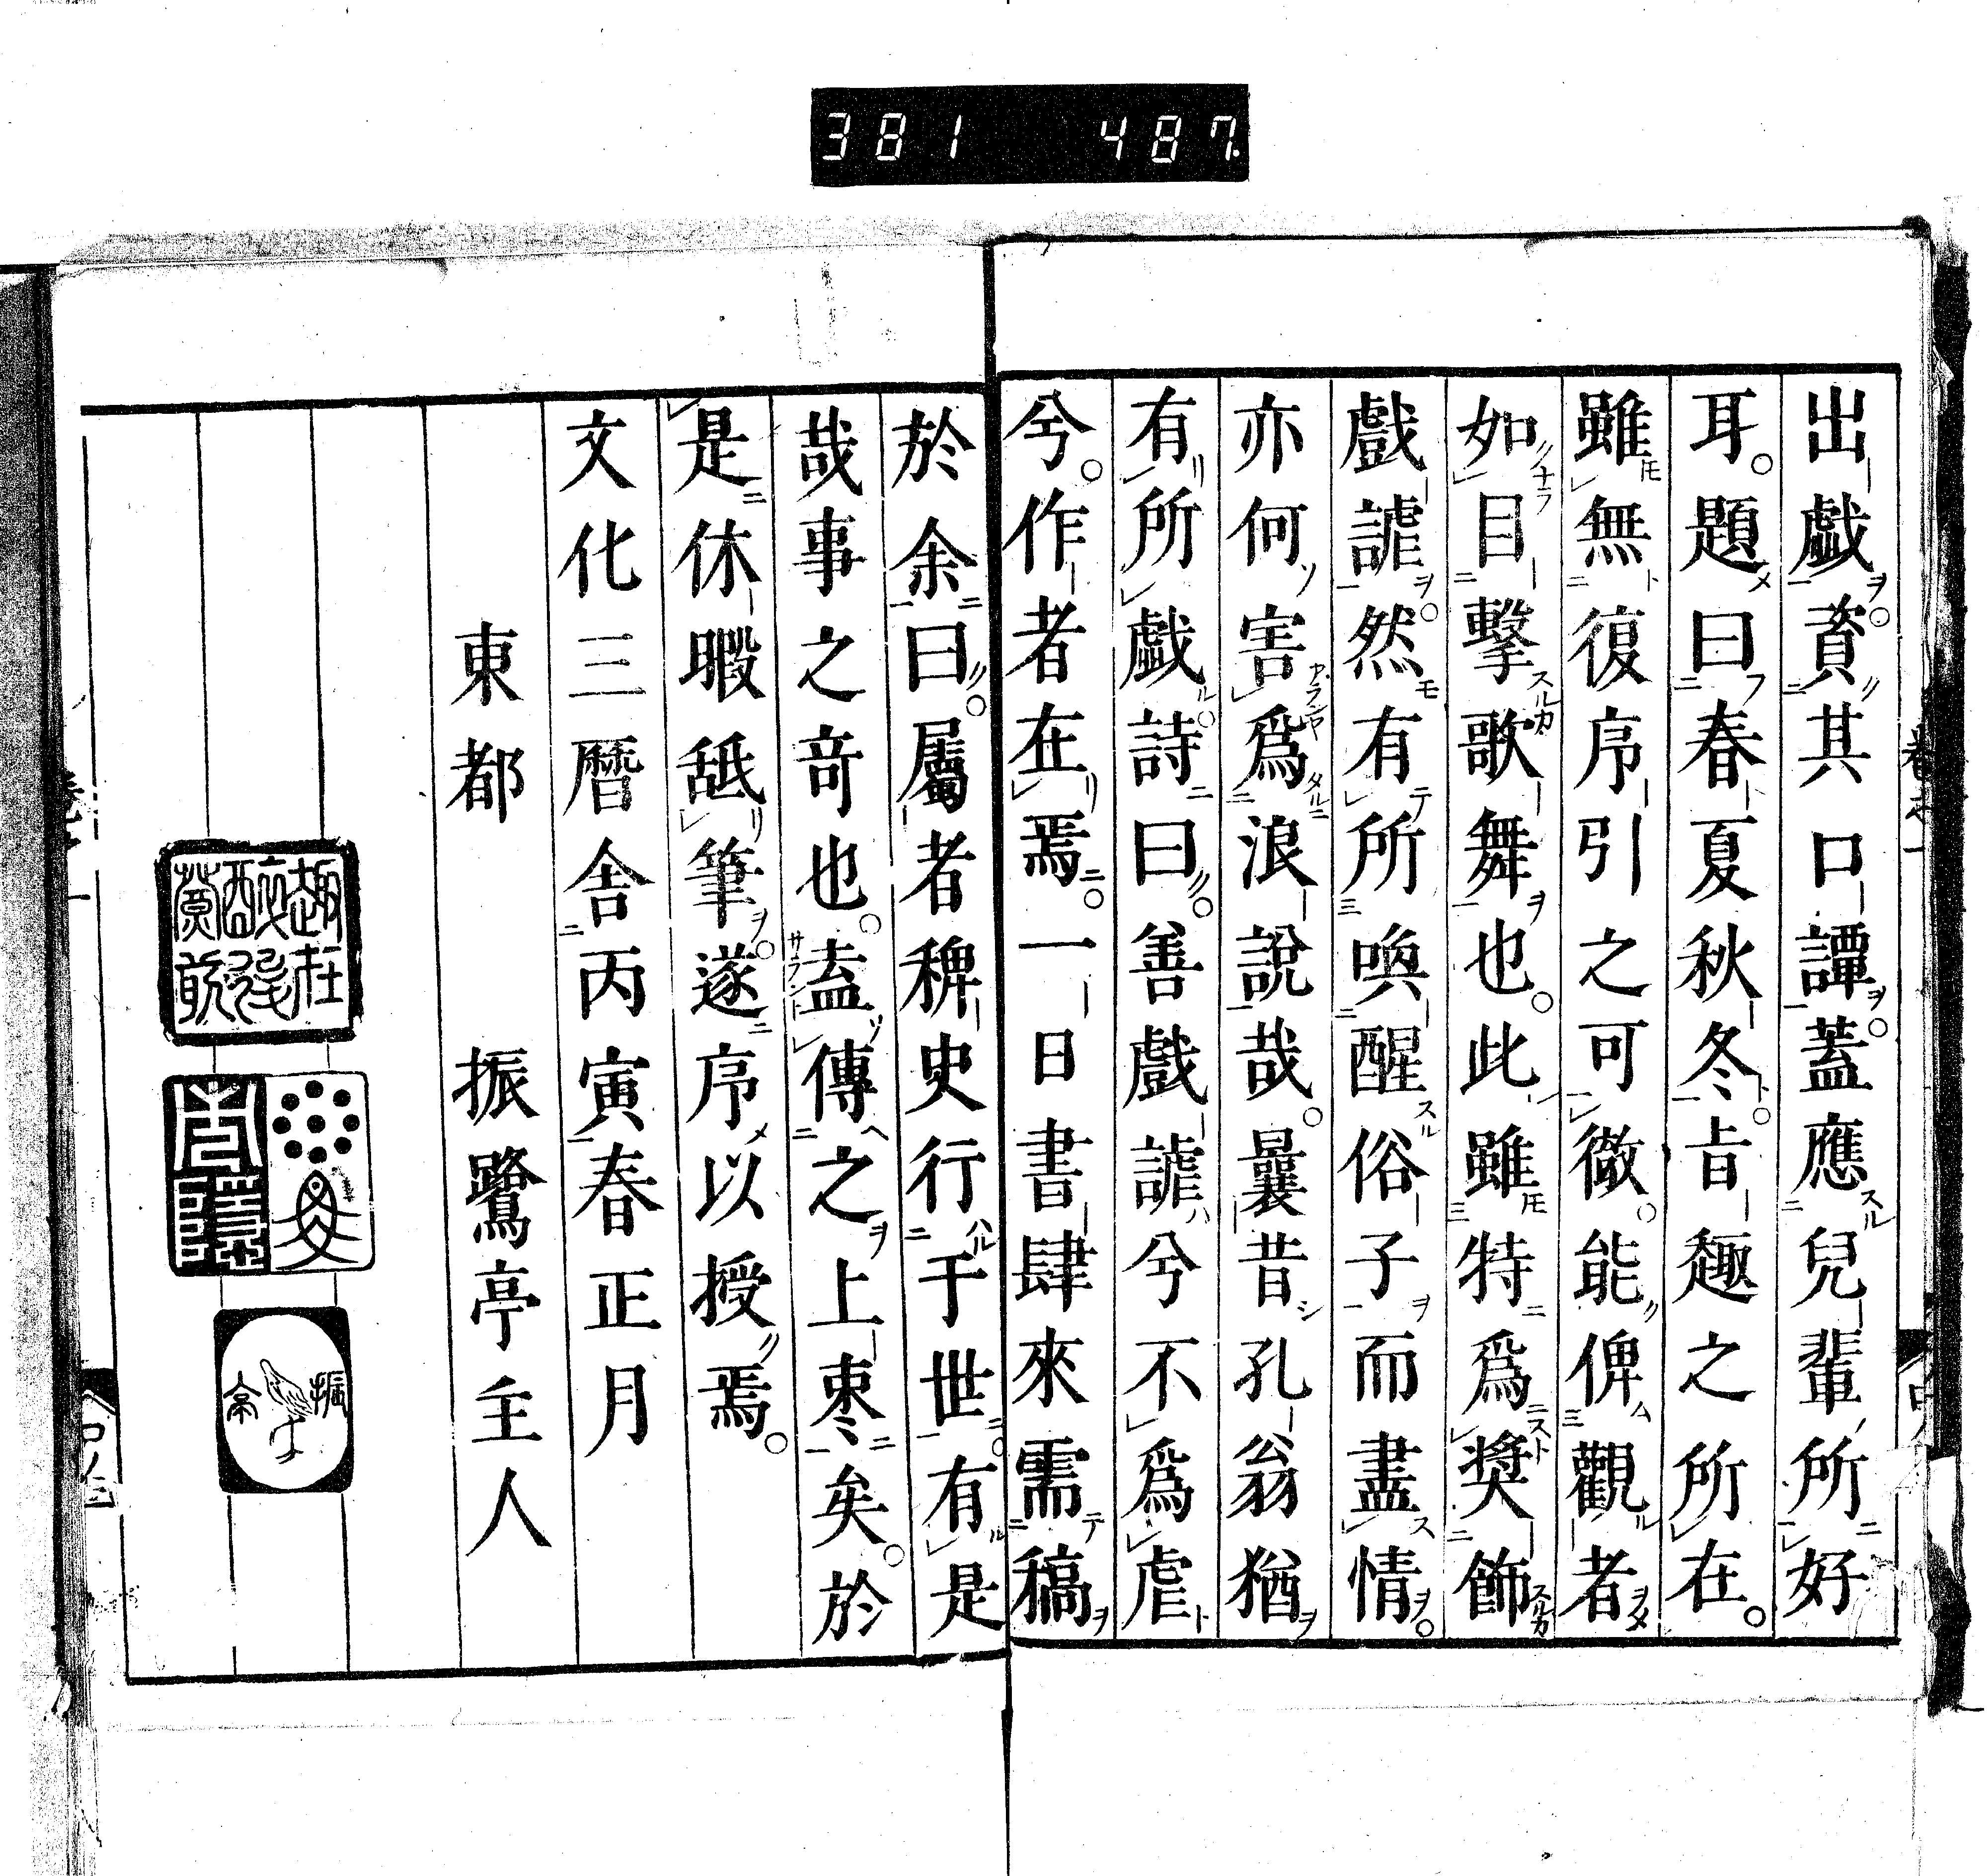 381 487
出戯資其口譚蓋應兒輩所好
耳。題曰春夏秋冬㫖趣之所在。
雖無復序引之可徴。能俾觀者
如目擊歌舞也。此雖特爲奬飾
戲謔。然有所喚醒俗子而盡情
亦何害爲浪說哉。曩昔孔翁猶
有所戯詩曰。善戲謔兮不爲虐
兮。作者在焉。一日書肆來需稿
於余曰。屬者稗史行于世。有是
哉事之竒也。盍傳之上枣矣。於
是休暇舐筆。遂序以授焉。
文化三曆舎丙寅春正月
東都 振鷺亭主人
振
亭